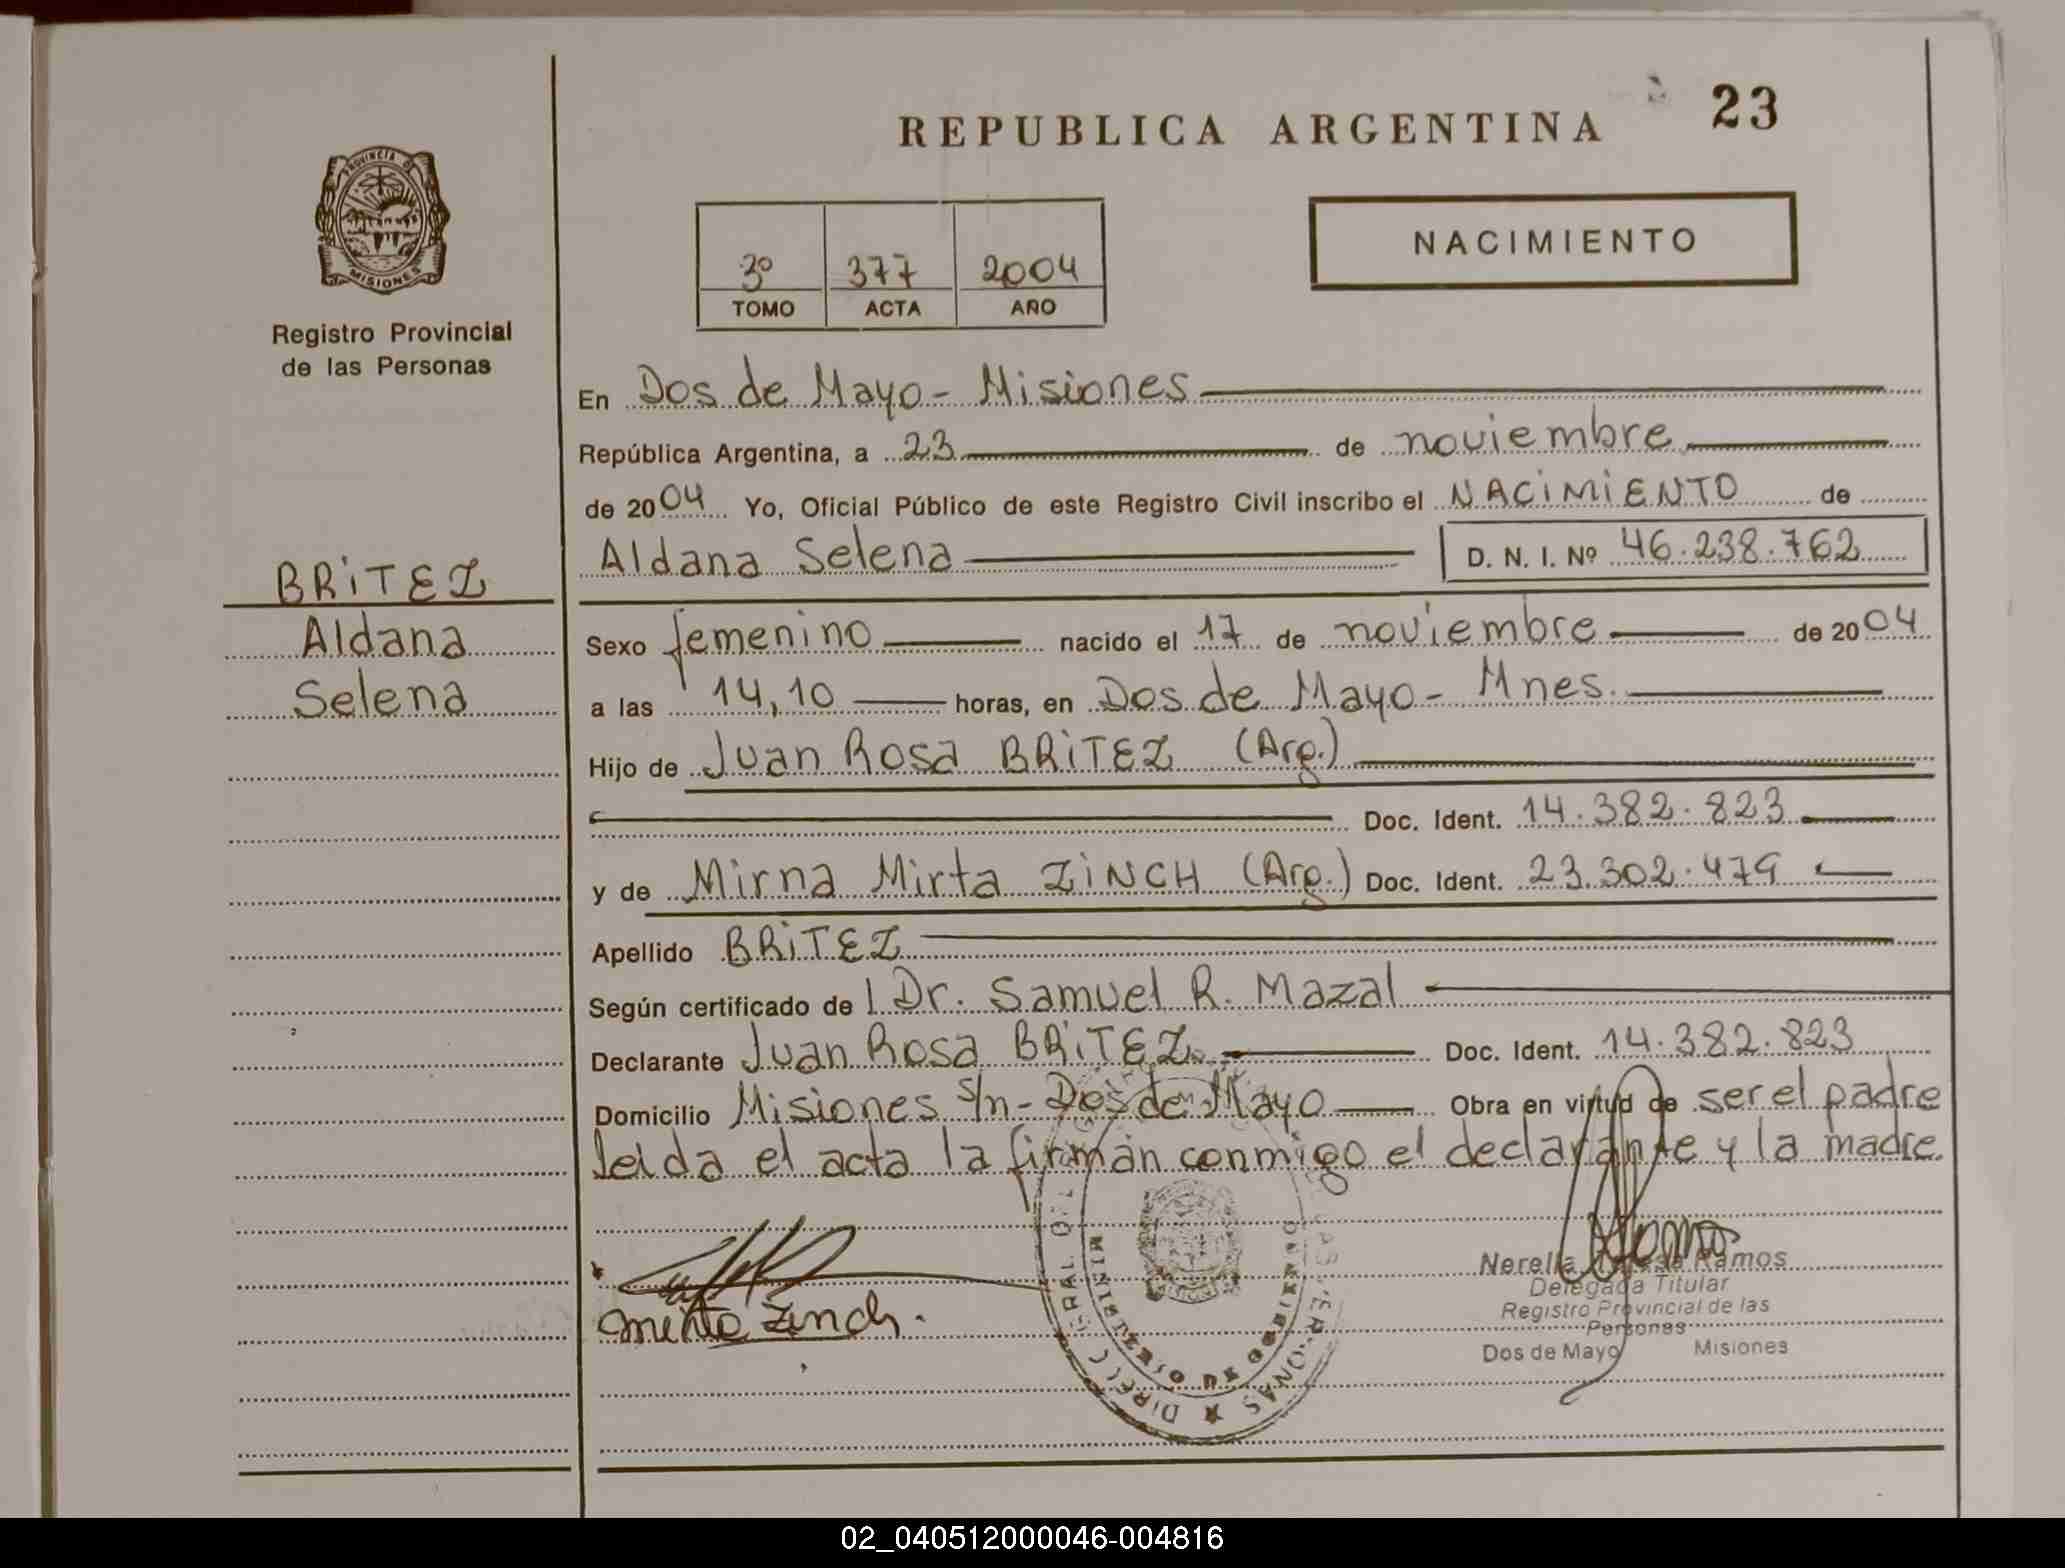 REPUBLICA ARGENTINA 23
PROVINCIA DE MISIONES
Registro Provincial
de las Personas
3º 377 2004
TOMO ACTA AÑO
NACIMIENTO
En Dos de Mayo - Misiones
República Argentina, a 23 de noviembre
de 2004 Yo, Oficial Público de este Registro Civil inscribo el NACIMIENTO de
Aldana Selena D. N. I. Nº 46.238.762
BRITEZ
Aldana
Selena
Sexo femenino nacido el 17 de noviembre de 2004
a las 14,10 horas, en Dos de Mayo - Mnes.
Hijo de Juan Rosa BRITEZ (Arg.)
Doc. Ident. 14.382.823
y de Mirna Mirta ZINCH (Arg.) Doc. Ident. 23.302.479
Apellido BRITEZ
Según certificado de l Dr. Samuel R. Mazal
Declarante Juan Rosa BRITEZ Doc. Ident. 14.382.823
Domicilio Misiones s/n - Dos de Mayo Obra en virtud de ser el padre
leida el acta la firman conmigo el declarante y la madre.
Zinch.
Nerella Ramos
Delegada Titular
Registro Provincial de las
Personas
Dos de Mayo Misiones
02_040512000046-004816